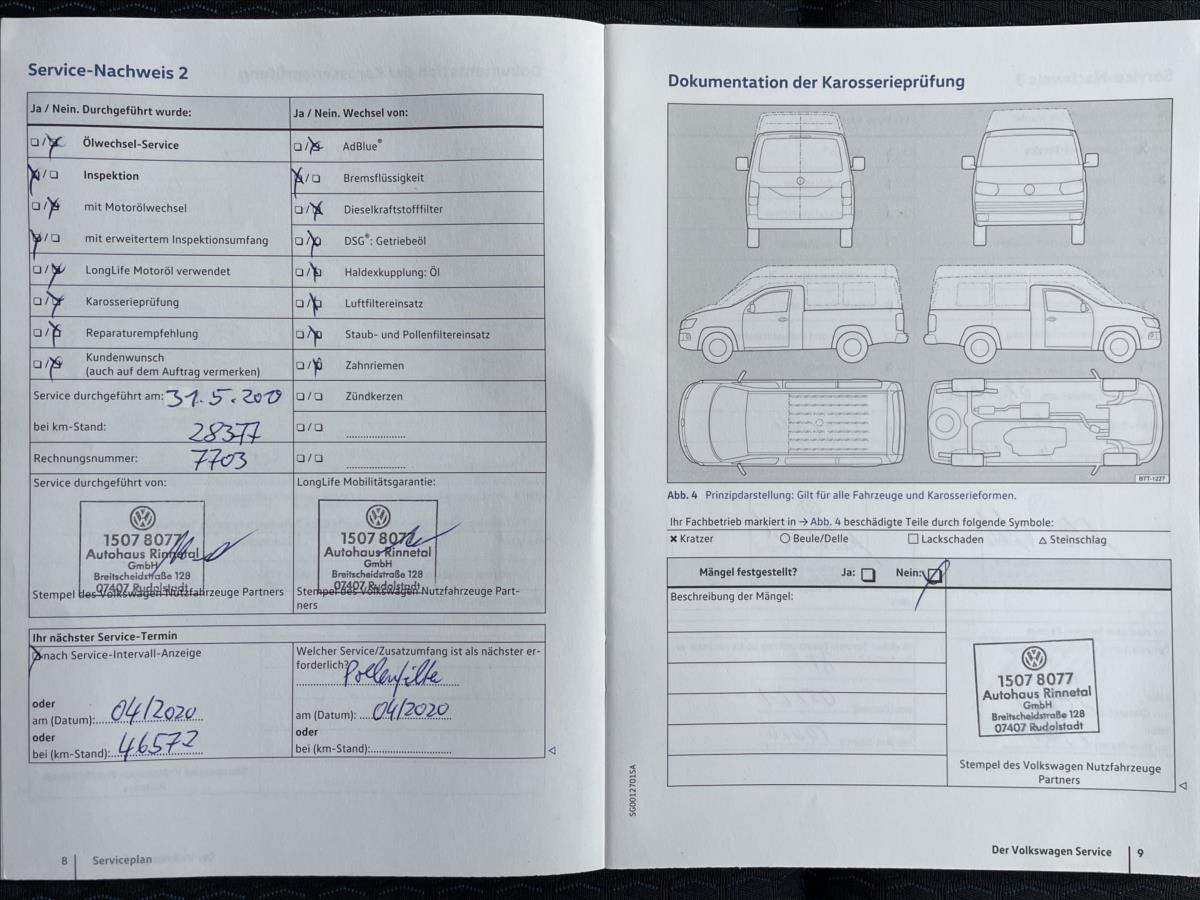 Service-Nachweis 2
Ja / Nein. Durchgeführt wurde:
Ja / Nein. Wechsel von:
Ölwechsel-Service
AdBlue®
Inspektion
Bremsflüssigkeit
mit Motorölwechsel
Dieselkraftstofffilter
mit erweitertem Inspektionsumfang
DSG®: Getriebeöl
LongLife Motoröl verwendet
Haldexkupplung: Öl
Karosserieprüfung
Luftfiltereinsatz
Reparaturempfehlung
Staub- und Pollenfiltereinsatz
Kundenwunsch
(auch auf dem Auftrag vermerken)
Zahnriemen
Service durchgeführt am: 31.5.2019
Zündkerzen
bei km-Stand: 28377
Rechnungsnummer: 7703
Service durchgeführt von:
1507 8077
Autohaus Rinnetal
GmbH
Breitscheidstraße 128
07407 Rudolstadt
Stempel des Volkswagen Nutzfahrzeuge Partners
LongLife Mobilitätsgarantie:
1507 8077
Autohaus Rinnetal
GmbH
Breitscheidstraße 128
07407 Rudolstadt
Stempel des Volkswagen Nutzfahrzeuge Part-
ners
Ihr nächster Service-Termin
nach Service-Intervall-Anzeige
oder
am (Datum): 04/2020
oder
bei (km-Stand): 46572
Welcher Service/Zusatzumfang ist als nächster er-
forderlich? Pollenfilter
am (Datum): 04/2020
oder
bei (km-Stand):
8 Serviceplan
Dokumentation der Karosserieprüfung
BTT-1227
Abb. 4 Prinzipdarstellung: Gilt für alle Fahrzeuge und Karosserieformen.
Ihr Fachbetrieb markiert in → Abb. 4 beschädigte Teile durch folgende Symbole:
Kratzer
Beule/Delle
Lackschaden
Steinschlag
Mängel festgestellt? Ja: Nein:
Beschreibung der Mängel:
1507 8077
Autohaus Rinnetal
GmbH
Breitscheidstraße 128
07407 Rudolstadt
Stempel des Volkswagen Nutzfahrzeuge
Partners
SG0012701SA
Der Volkswagen Service 9